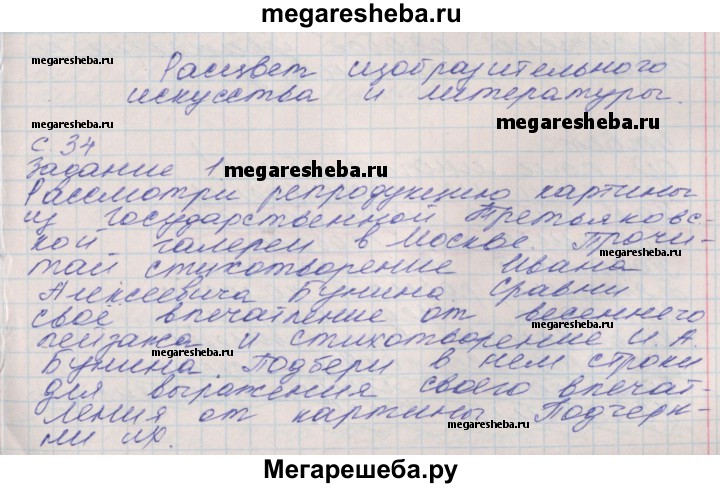 megaresheba.ru
megaresheba.ru
Расцвет изобразительного
искусства и литературы.
megaresheba.ru
megaresheba.ru
с. 34
Задание 1 megaresheba.ru
Рассмотри репродукцию картины
из государственной Третьяковс-
кой галереи в Москве. Прочи-
megaresheba.ru
тай стихотворение Ивана
Алексеевича Бунина. Сравни
своё впечатление от весеннего
пейзажа и стихотворение И.А.
megaresheba.ru
Бунина. Подбери в нем строки
для выражения своего впечат-
ления от картины. Подчерк-
ни их.
megaresheba.ru
Мегарешеба.ру